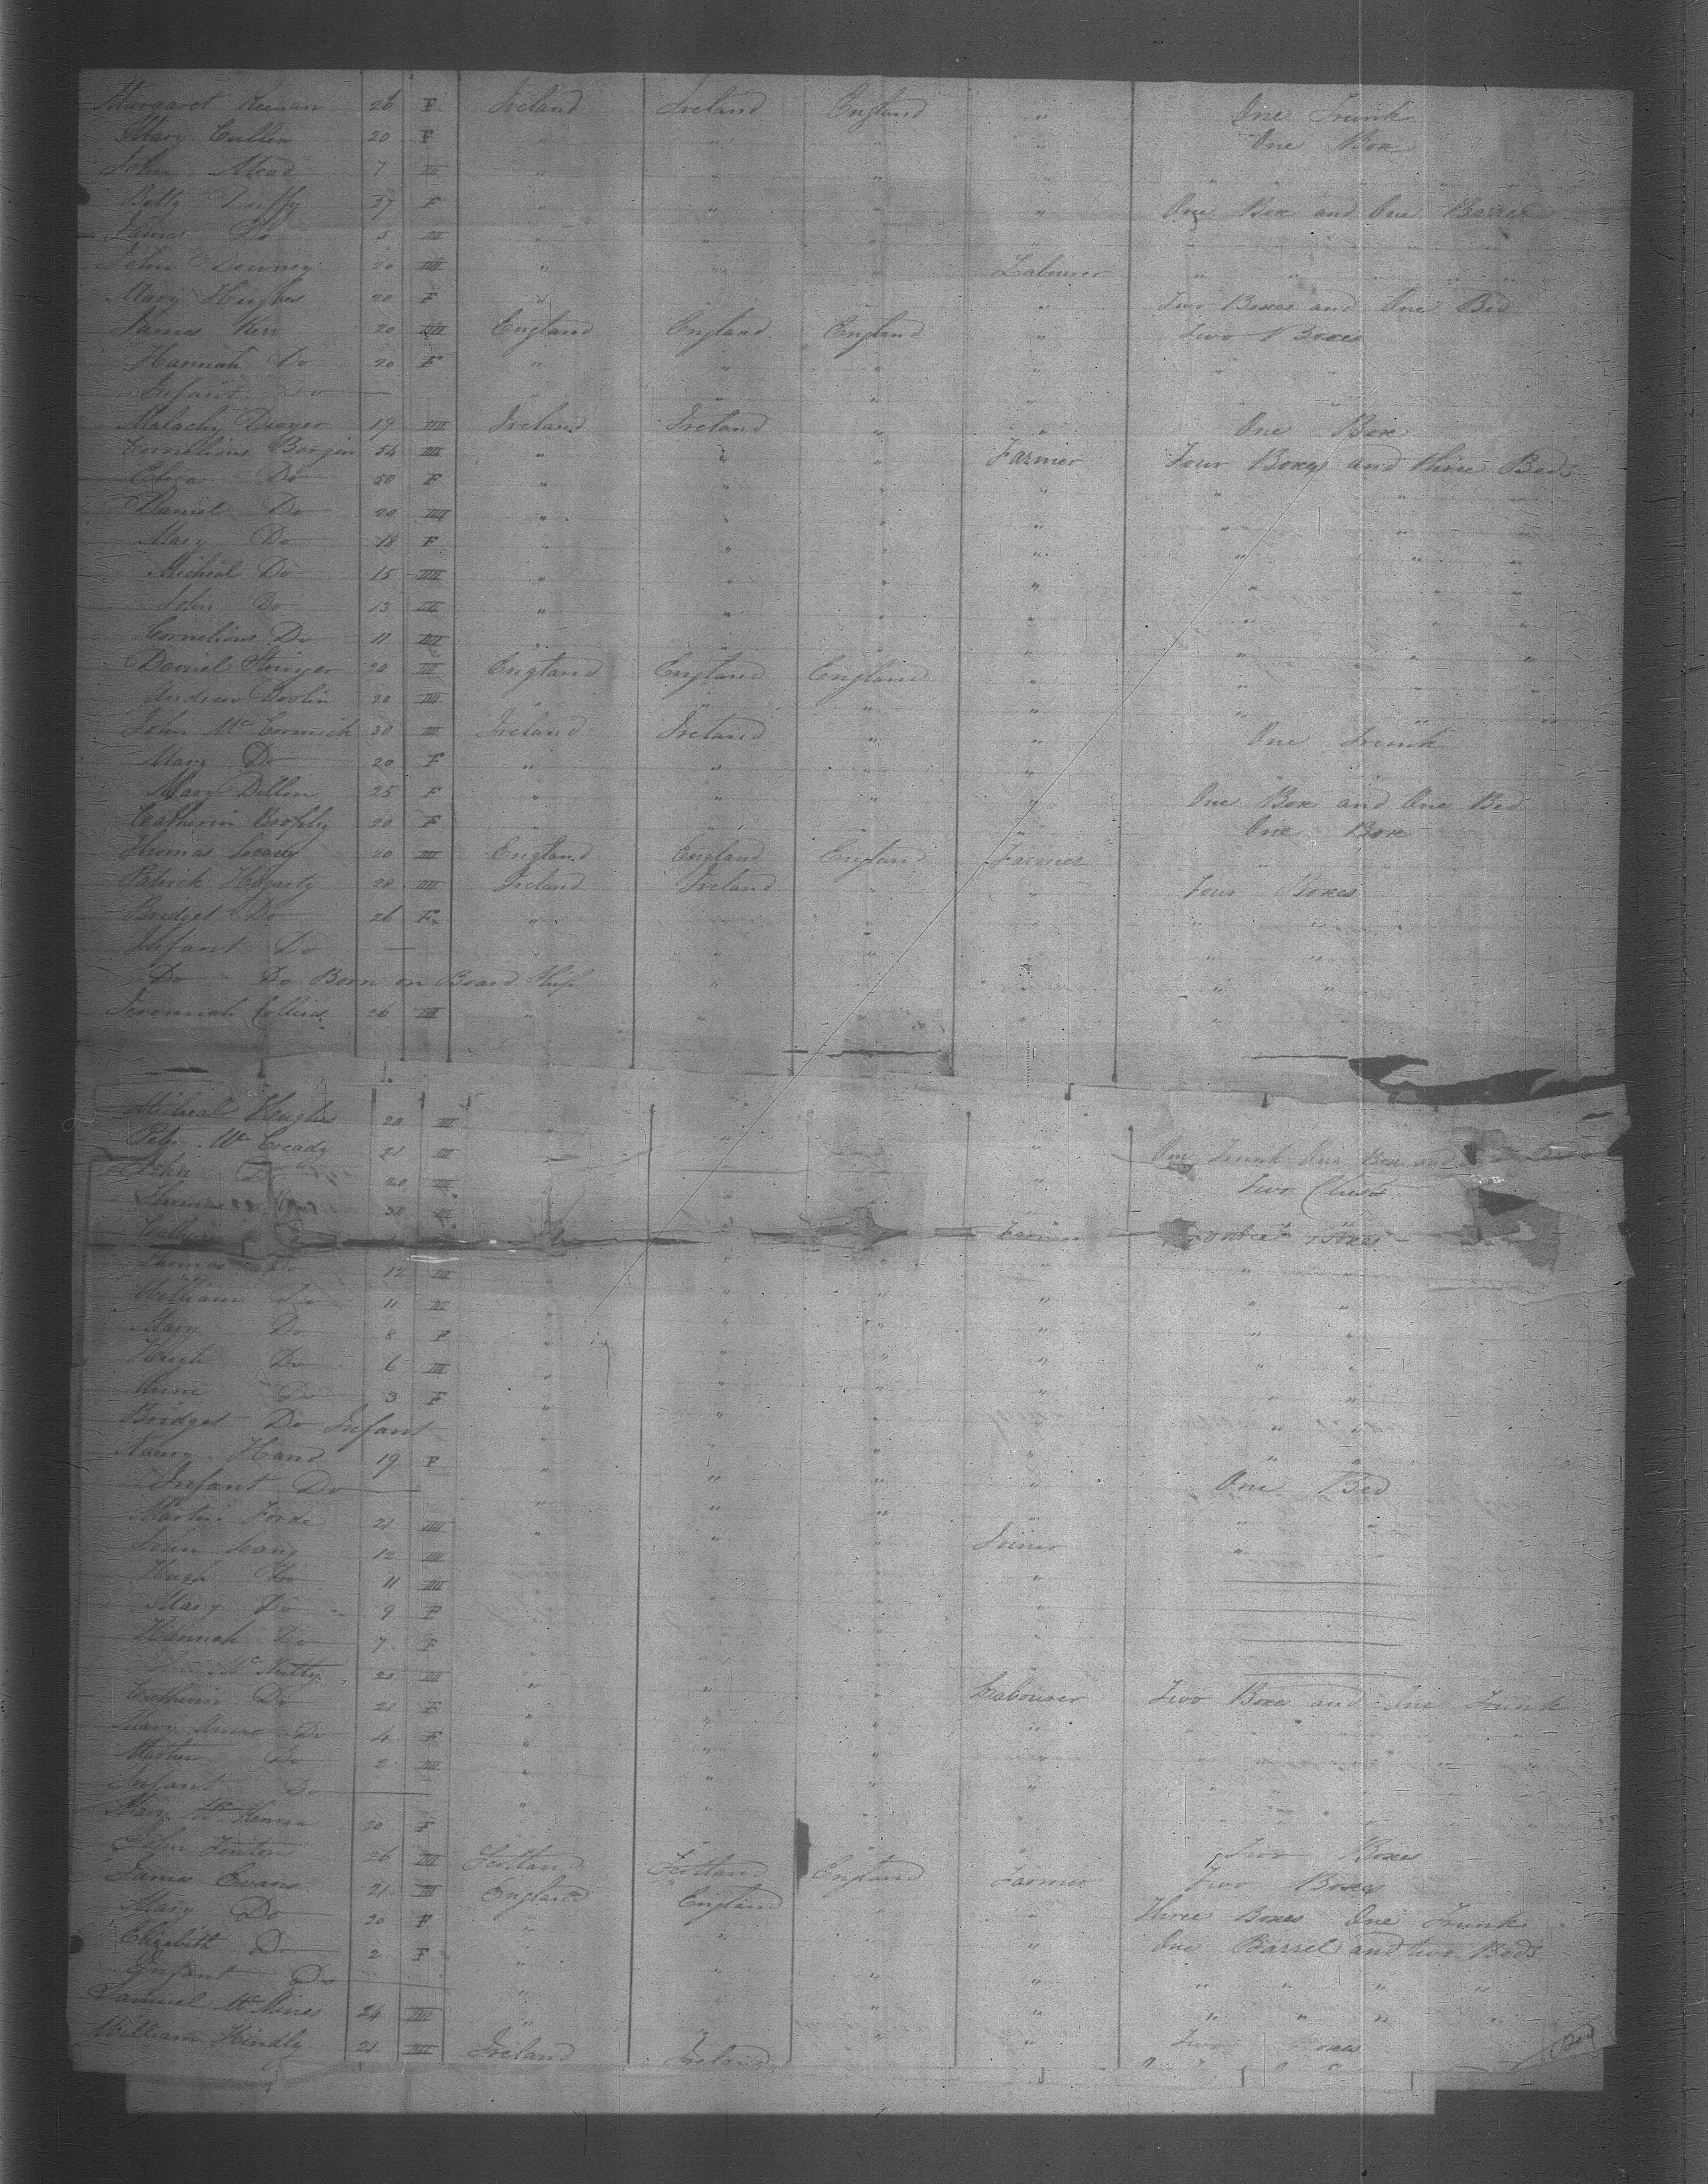 Margaret Keenan 26 F Ireland Ireland England " One Trunk
Mary Cullen 20 F " " " " One Box
John Mead 7 M " " " " " " " "
Betty Duffy 37 F " " " " One Box and One Barrel
James Do 5 M " " " " " " " "
John Downey 20 M " " " Labourer " " " "
Mary Hughes 20 F " " " " Two Boxes and One Bed
James Kerr 20 M England England England " Two Boxes
Hannah Do 20 F " " " " " "
Infant Do — " " " " "
Malachy Dwyer 19 M Ireland Ireland " " One Box
Cornelious Bergin 54 M " " " Farmer Four Boxes and three Beds
Eliza Do 50 F " " " " " " "
Daniel Do 20 M " " " " " " "
Mary Do 18 F " " " " " " "
Micheal Do 15 M " " " " " " "
John Do 13 M " " " " " " "
Cornelious Do 11 M " " " " " " "
Daniel 20 M England England England " " " "
Andrew Devlin 20 M " " " " " " "
John Mc Cormick 30 M Ireland Ireland " " One Trunk
Mary Do 20 F " " " " " "
Mary Dillon 25 F " " " " One Box and One Bed
Catherin Brophy 20 F " " " " One Box
Thomas Leary 20 M England England England Farmer " "
Patrick Hogarty 28 M Ireland Ireland " " Four Boxes
Bridget Do 26 F " " " " " "
Infant Do — " " " " " "
Do Do Born on Board Ship " " " " "
Jeremiah Collins 26 M " " " " " "
Micheal Hughes 20 M " " " "
Peter Mc Cready 21 M " " " " One Trunk One Box
John Do 20 M " " " " Two Chests
Thomas 30 M " " " "
Catherin Farmer Boxes
Thomas Do 12 M " " " " " "
William Do 11 M " " " " " "
Mary Do 8 F " " " " " "
Hugh Do 6 M " " " " " "
Anne Do 3 F " " " " " "
Bridget Do Infant " " " " " "
Nancy Hand 19 F " " " " " "
Infant Do — " " " " One Bed
Martin Forde 21 M " " " " " "
Leary 12 M " " " Joiner " "
Hugh Do 11 M " " " " —
Mary Do 9 F " " " " —
Hannah Do 7 F " " " " —
Mc Nulty 20 M " " " " —
Catherin Do 21 F " " " Labourer Two Boxes and One Trunk
Mary Anne Do 4 F " " " " " " " "
Mathew Do 2 M " " " " " " " "
Infant Do — " " " " " " "
Mary Mc Kenna 20 F " " " " " " "
Fenton 26 M Scotland Scotland England " Two Boxes
James Evans 21 M England England " Farmer Two Boxes
Mary Do 20 F " " " " Three Boxes One Trunk
Elizabeth Do 2 F " " " " One Barrel and two Beds
Infant Do — " " " " " " " "
Samuel Mc Mines 24 M " " " " " " " "
William Hindly 21 M Ireland Ireland " " Two Boxes
" " " "